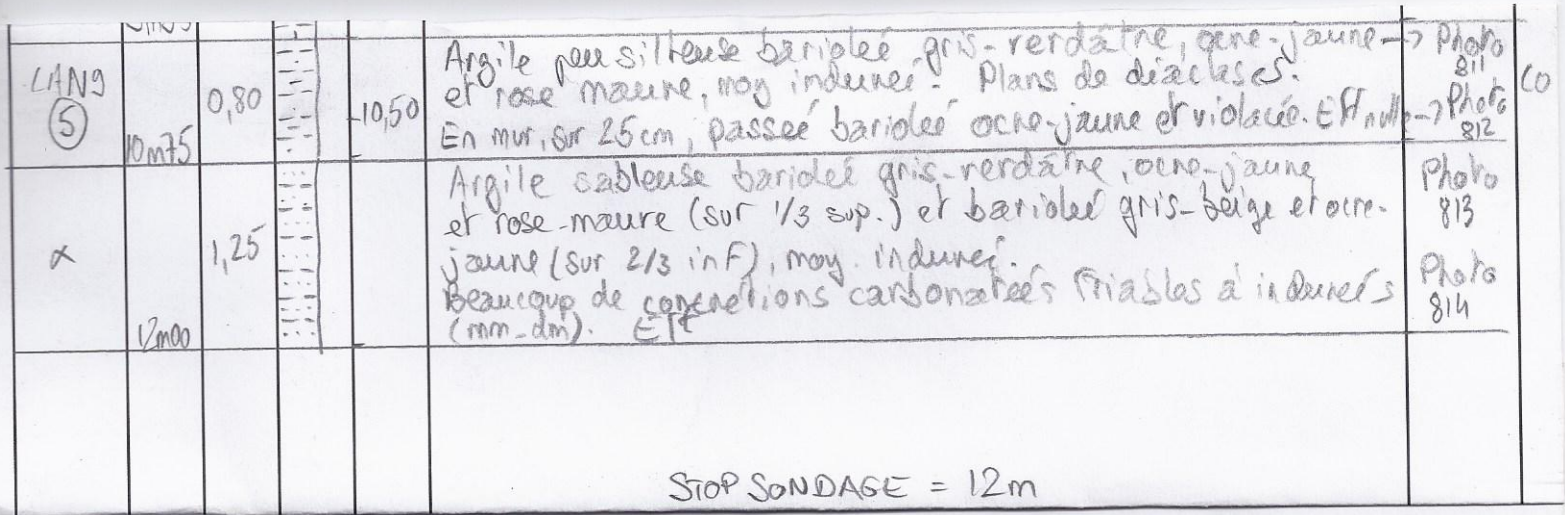 LANG
5
10m75
0,80
10,50
Argile peu silteuse bariolée gris-verdâtre, ocre-jaune → Photo 811
et rose mauve, moy indurée. Plans de diaclases.
En mur, sur 25cm, passée bariolée ocre-jaune et violacée. Eff nulle → Photo 812
CO
α
12m00
1,25
Argile sableuse bariolée gris-verdâtre, ocre-jaune
et rose-mauve (sur 1/3 sup.) et bariolée gris-beige et ocre-
jaune (sur 2/3 inf), moy. indurée.
Beaucoup de concrétions carbonatées friables à indurées
(mm-dm). Eff
Photo
813
Photo
814
STOP SONDAGE = 12m